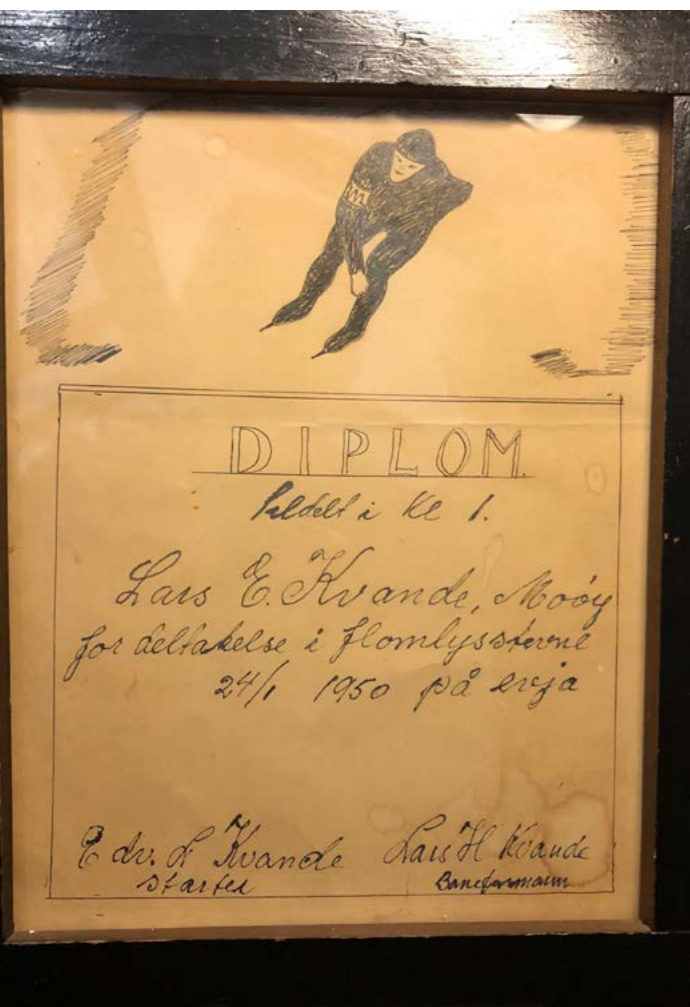 DIPLOM.
tildelt i Kl 1.
Lars E. Kvande, Moøy
for deltakelse i flomlysstevne
24/1 1950 på evja
Edv. L Kvande Lars H Kvande
starter Baneformann